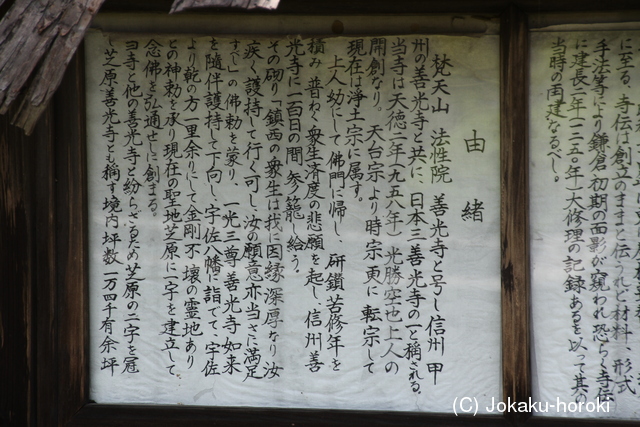 由緒
梵天山 法性院 善光寺と号し信州 甲
州の善光寺と共に、日本三善光寺の一と称される。
当寺は天徳二年(九五八年)光勝空也上人の
開創なり、天台宗より時宗更に転宗して
現在は浄土宗に属す。
上人幼にして佛門に帰し、研鎖苦修年を
積み 普ねく衆生済度の悲願を起し、信州善
光寺に一百日の間 参籠し給う。
その砌り「鎮西の衆生は我に因縁深厚なり汝
疾く護持て行く可し、汝の願意亦当さに満足
すべし」の佛勅を蒙り、一光三尊善光寺如来
を隨伴護持して下向し、宇佐八幡に詣でて、宇佐
より乾の方一里余りにして金剛不壊の霊地あり
との神勅を承り現在の聖地芝原に一宇を建立して、
念佛を弘通せしに創まる。
ヨ寺と他の善光寺と紛らざるため芝原の二字を冠
し芝原善光寺とも稱す境内坪数一万四千有余坪
に至る、寺伝は創立のままと伝うれど材料、形式
手法等により鎌倉初期の面影が窺われ恐らく寺伝
に建長二年(一二五〇年)大修理の記録あるを以って其の
当時の再建なるべし。
(C) Jokaku-horoki